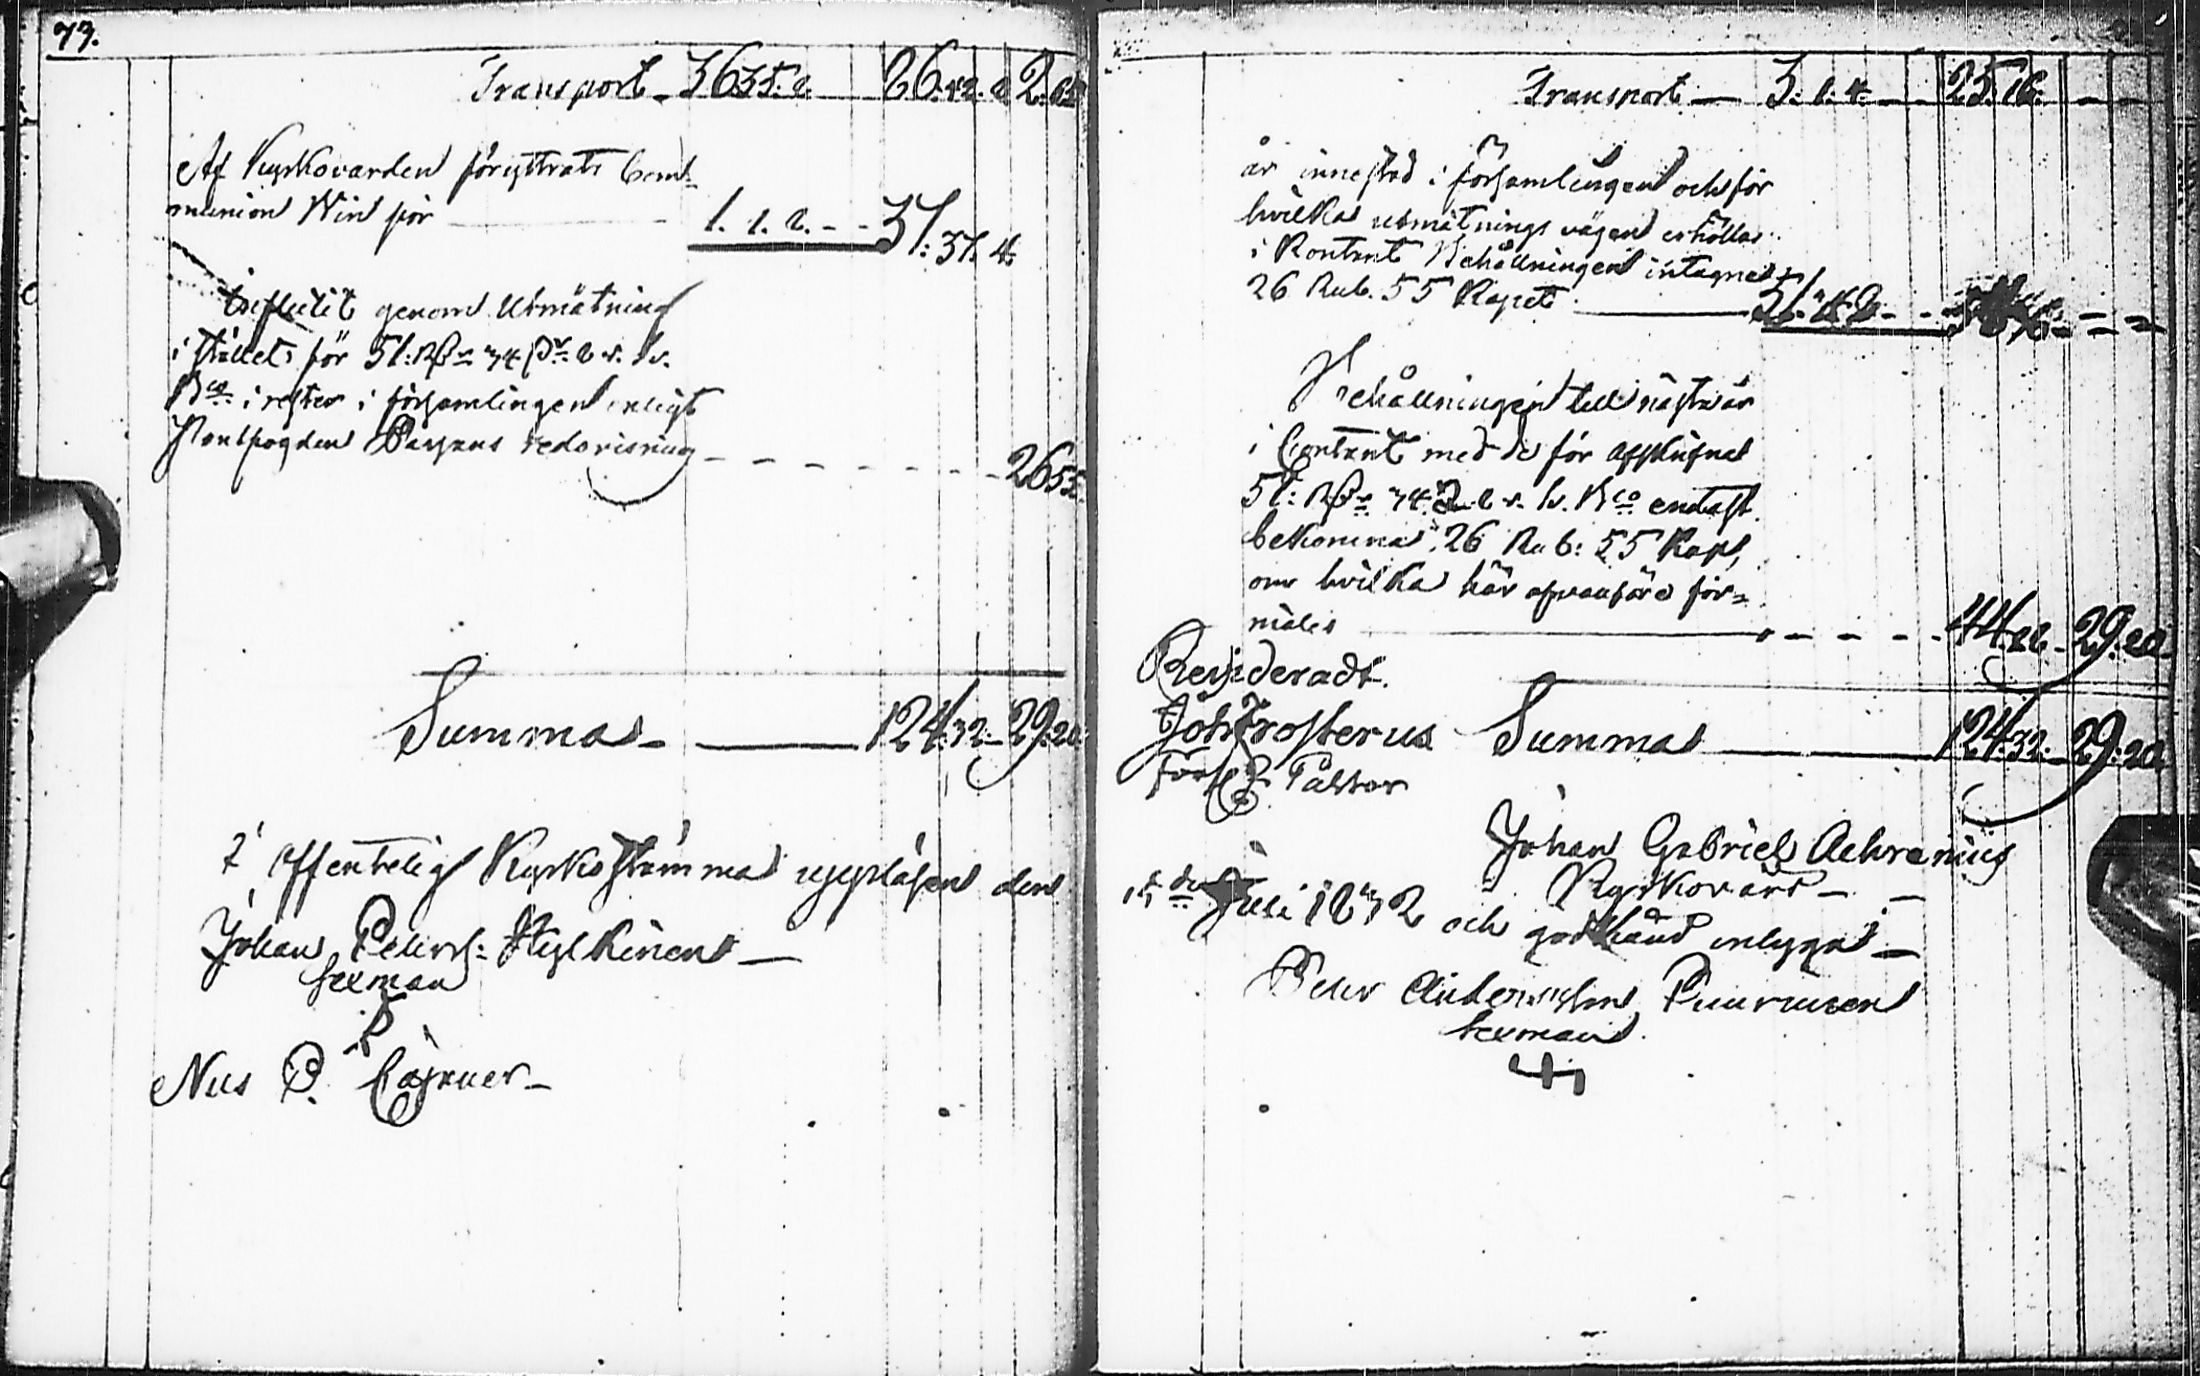 73.
Transport 36 35. 2. 26. 42. 2 2. 65
Af Kyrkovärden försträckt Com=
munion Win för 1. 1. 2. 37. 37. 4.
Influtit genom Utmätning
i stället för 51: Rß 34 ß 2 r. Sv.
Bco i rester i församlingen enligt
Länsfogden redovisning 26 55.
Summa 124. 32. 29. 20
I Offentelig Kyrkostämma uppläsen den
Johan Petersß: Hylkinen
Sexman
Nils P. Cajaner
Transport 3. 1. 4. 25. 16.
är innestod i församlingen och för
hvilka utmätnings vägen erhöllos
i Kontant Behållningen intagne
26 Rub. 55 Kopek
Behållningen till nästa år
i Contant med de för afskrifne
51: Rß 34 ß 2 r. Sv. Bco endast
bekomna 26 Rub: 55 Kop,
om hvilka här ofvanföre för=
mäles 44. 22. 29. 20
Revideradt.
Joh Frosterus Summa 124. 32. 29. 20
Pastor
Johan Gabriel Aehrenius
Kyrkovärd
15de Juli 1832 och godkänd intygas
Petter Andersson Puurunen
Sexman